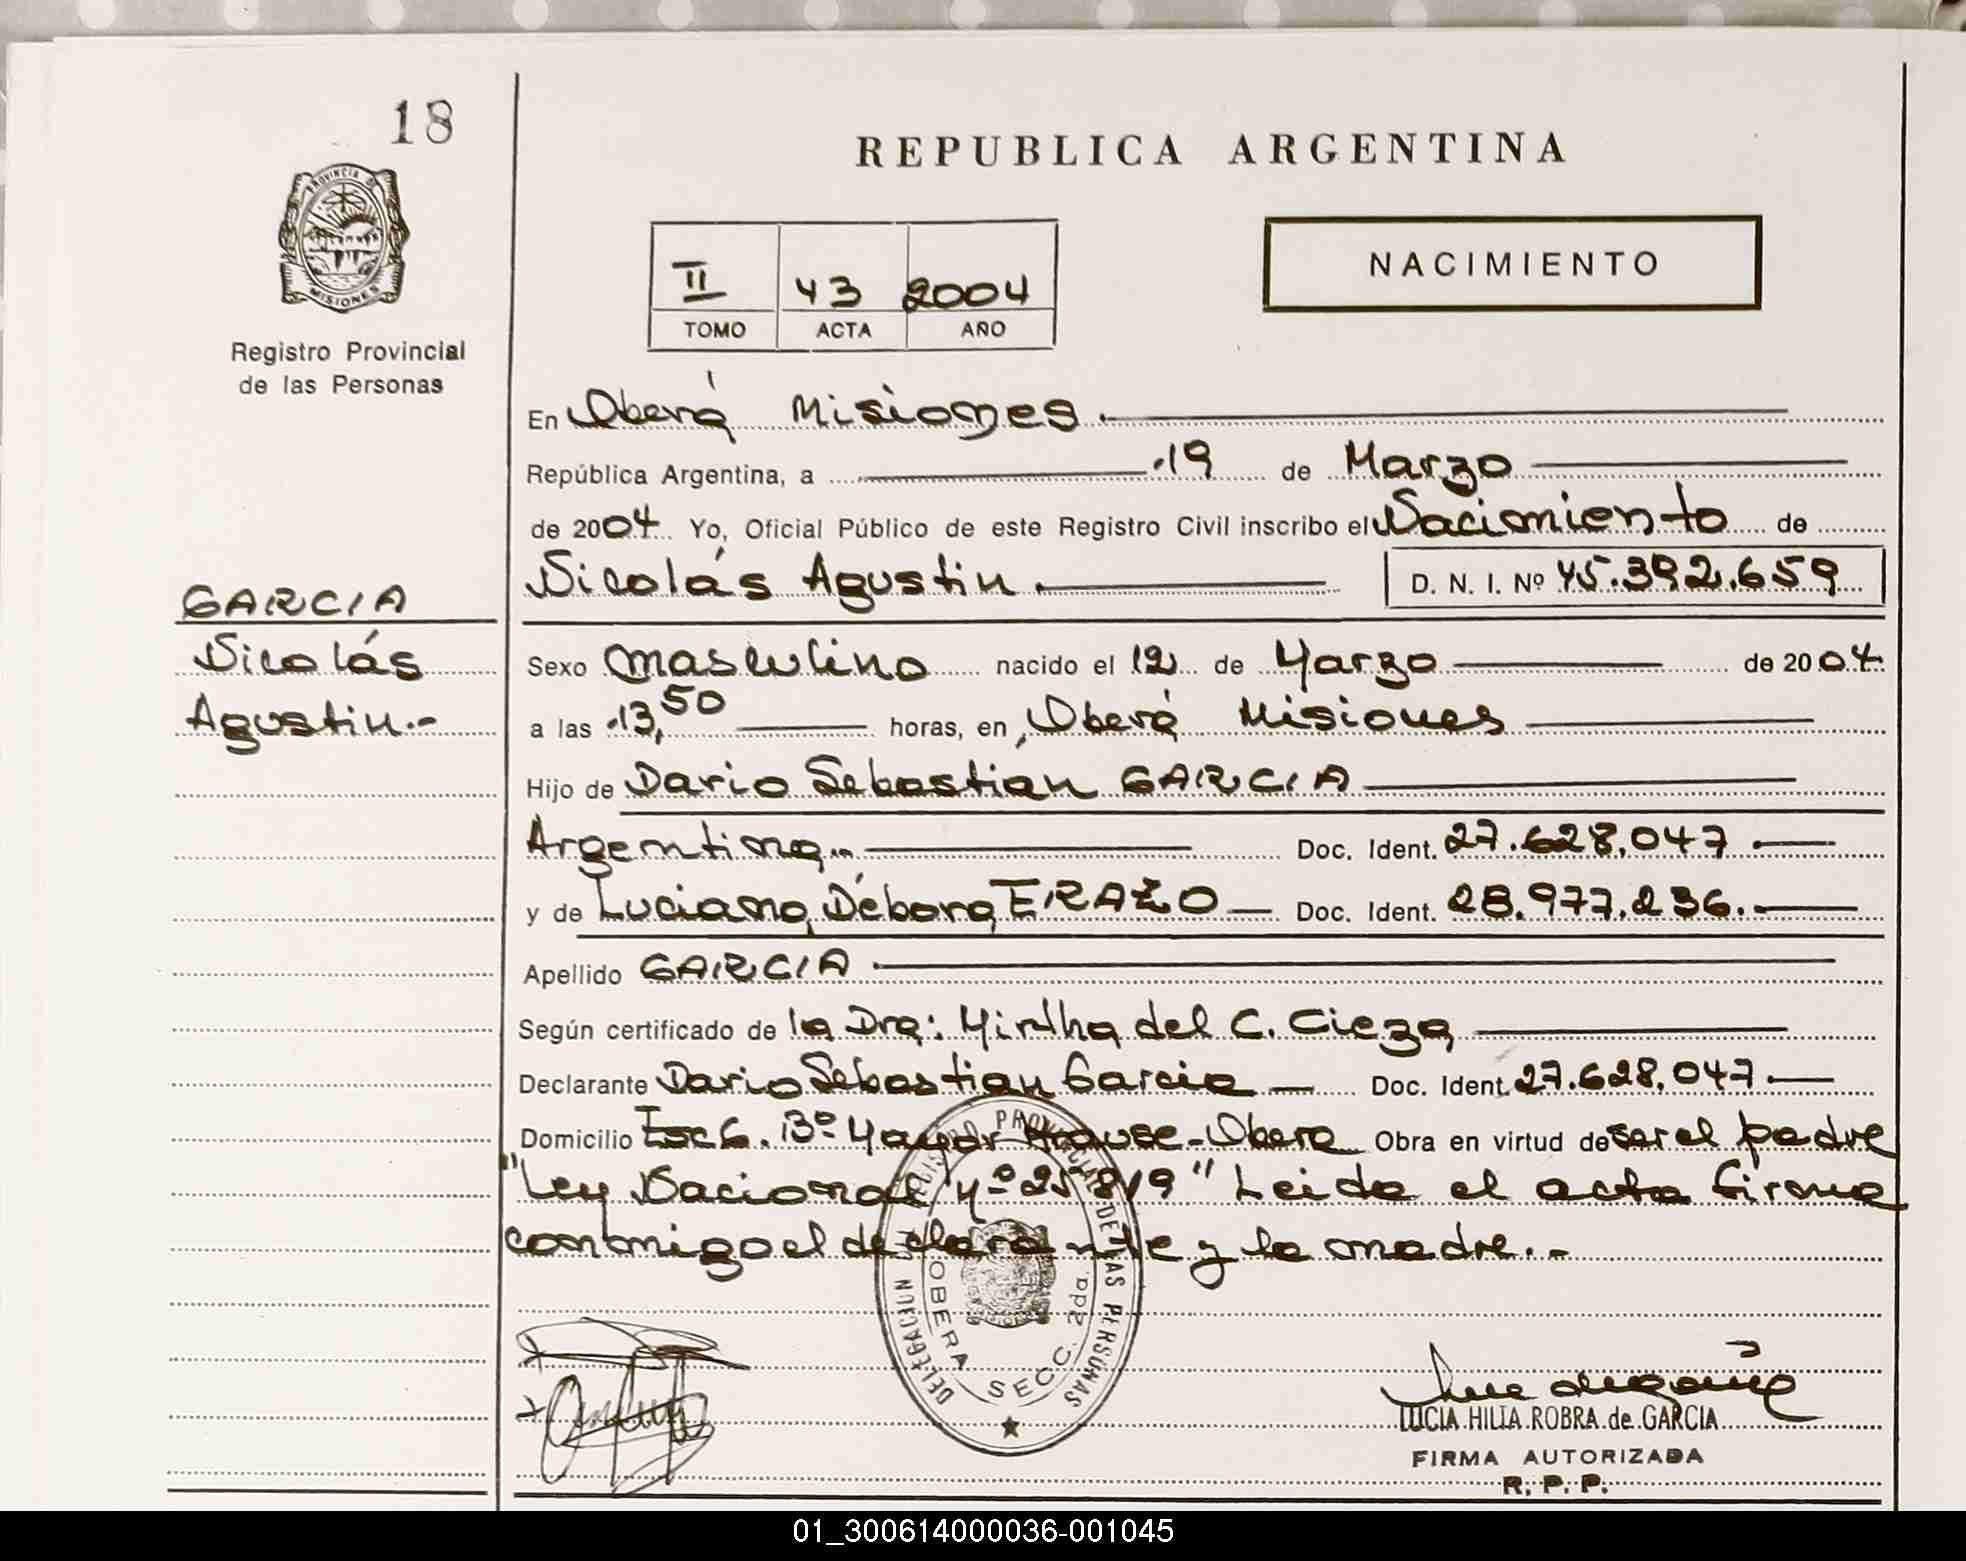 18
REPUBLICA ARGENTINA
PROVINCIA DE
MISIONES
Registro Provincial
de las Personas
II 43 2004
TOMO ACTA AÑO
NACIMIENTO
En Oberá Misiones.
República Argentina, a 19 de Marzo
de 2004. Yo, Oficial Público de este Registro Civil inscribo el Nacimiento de
Nicolás Agustin. D. N. I. Nº 45.392.659
GARCIA
Nicolás
Agustin.-
Sexo Masculino nacido el 12 de Marzo de 2004
a las 13,50 horas, en Oberá Misiones
Hijo de Dario Sebastian GARCIA
Argentina.. Doc. Ident. 27.628.047
y de Luciana Débora ERAZO Doc. Ident. 28.977.236.
Apellido GARCIA
Según certificado de la Dra: Mirtha del C. Cieza
Declarante Dario Sebastian Garcia Doc. Ident. 27.628.047
Domicilio Esc G. Bº Yapor Krause-Obera Obra en virtud de ser el padre
"Ley Nacional Nº 25819" Leida el acta firma
conmigo el declarante y la madre.-
REGISTRO PROVINCIAL DE LAS PERSONAS
DELEGACION
OBERA SECC. 2da.
LUCIA HILIA ROBRA de GARCIA
FIRMA AUTORIZADA
R. P. P.
01_300614000036-001045